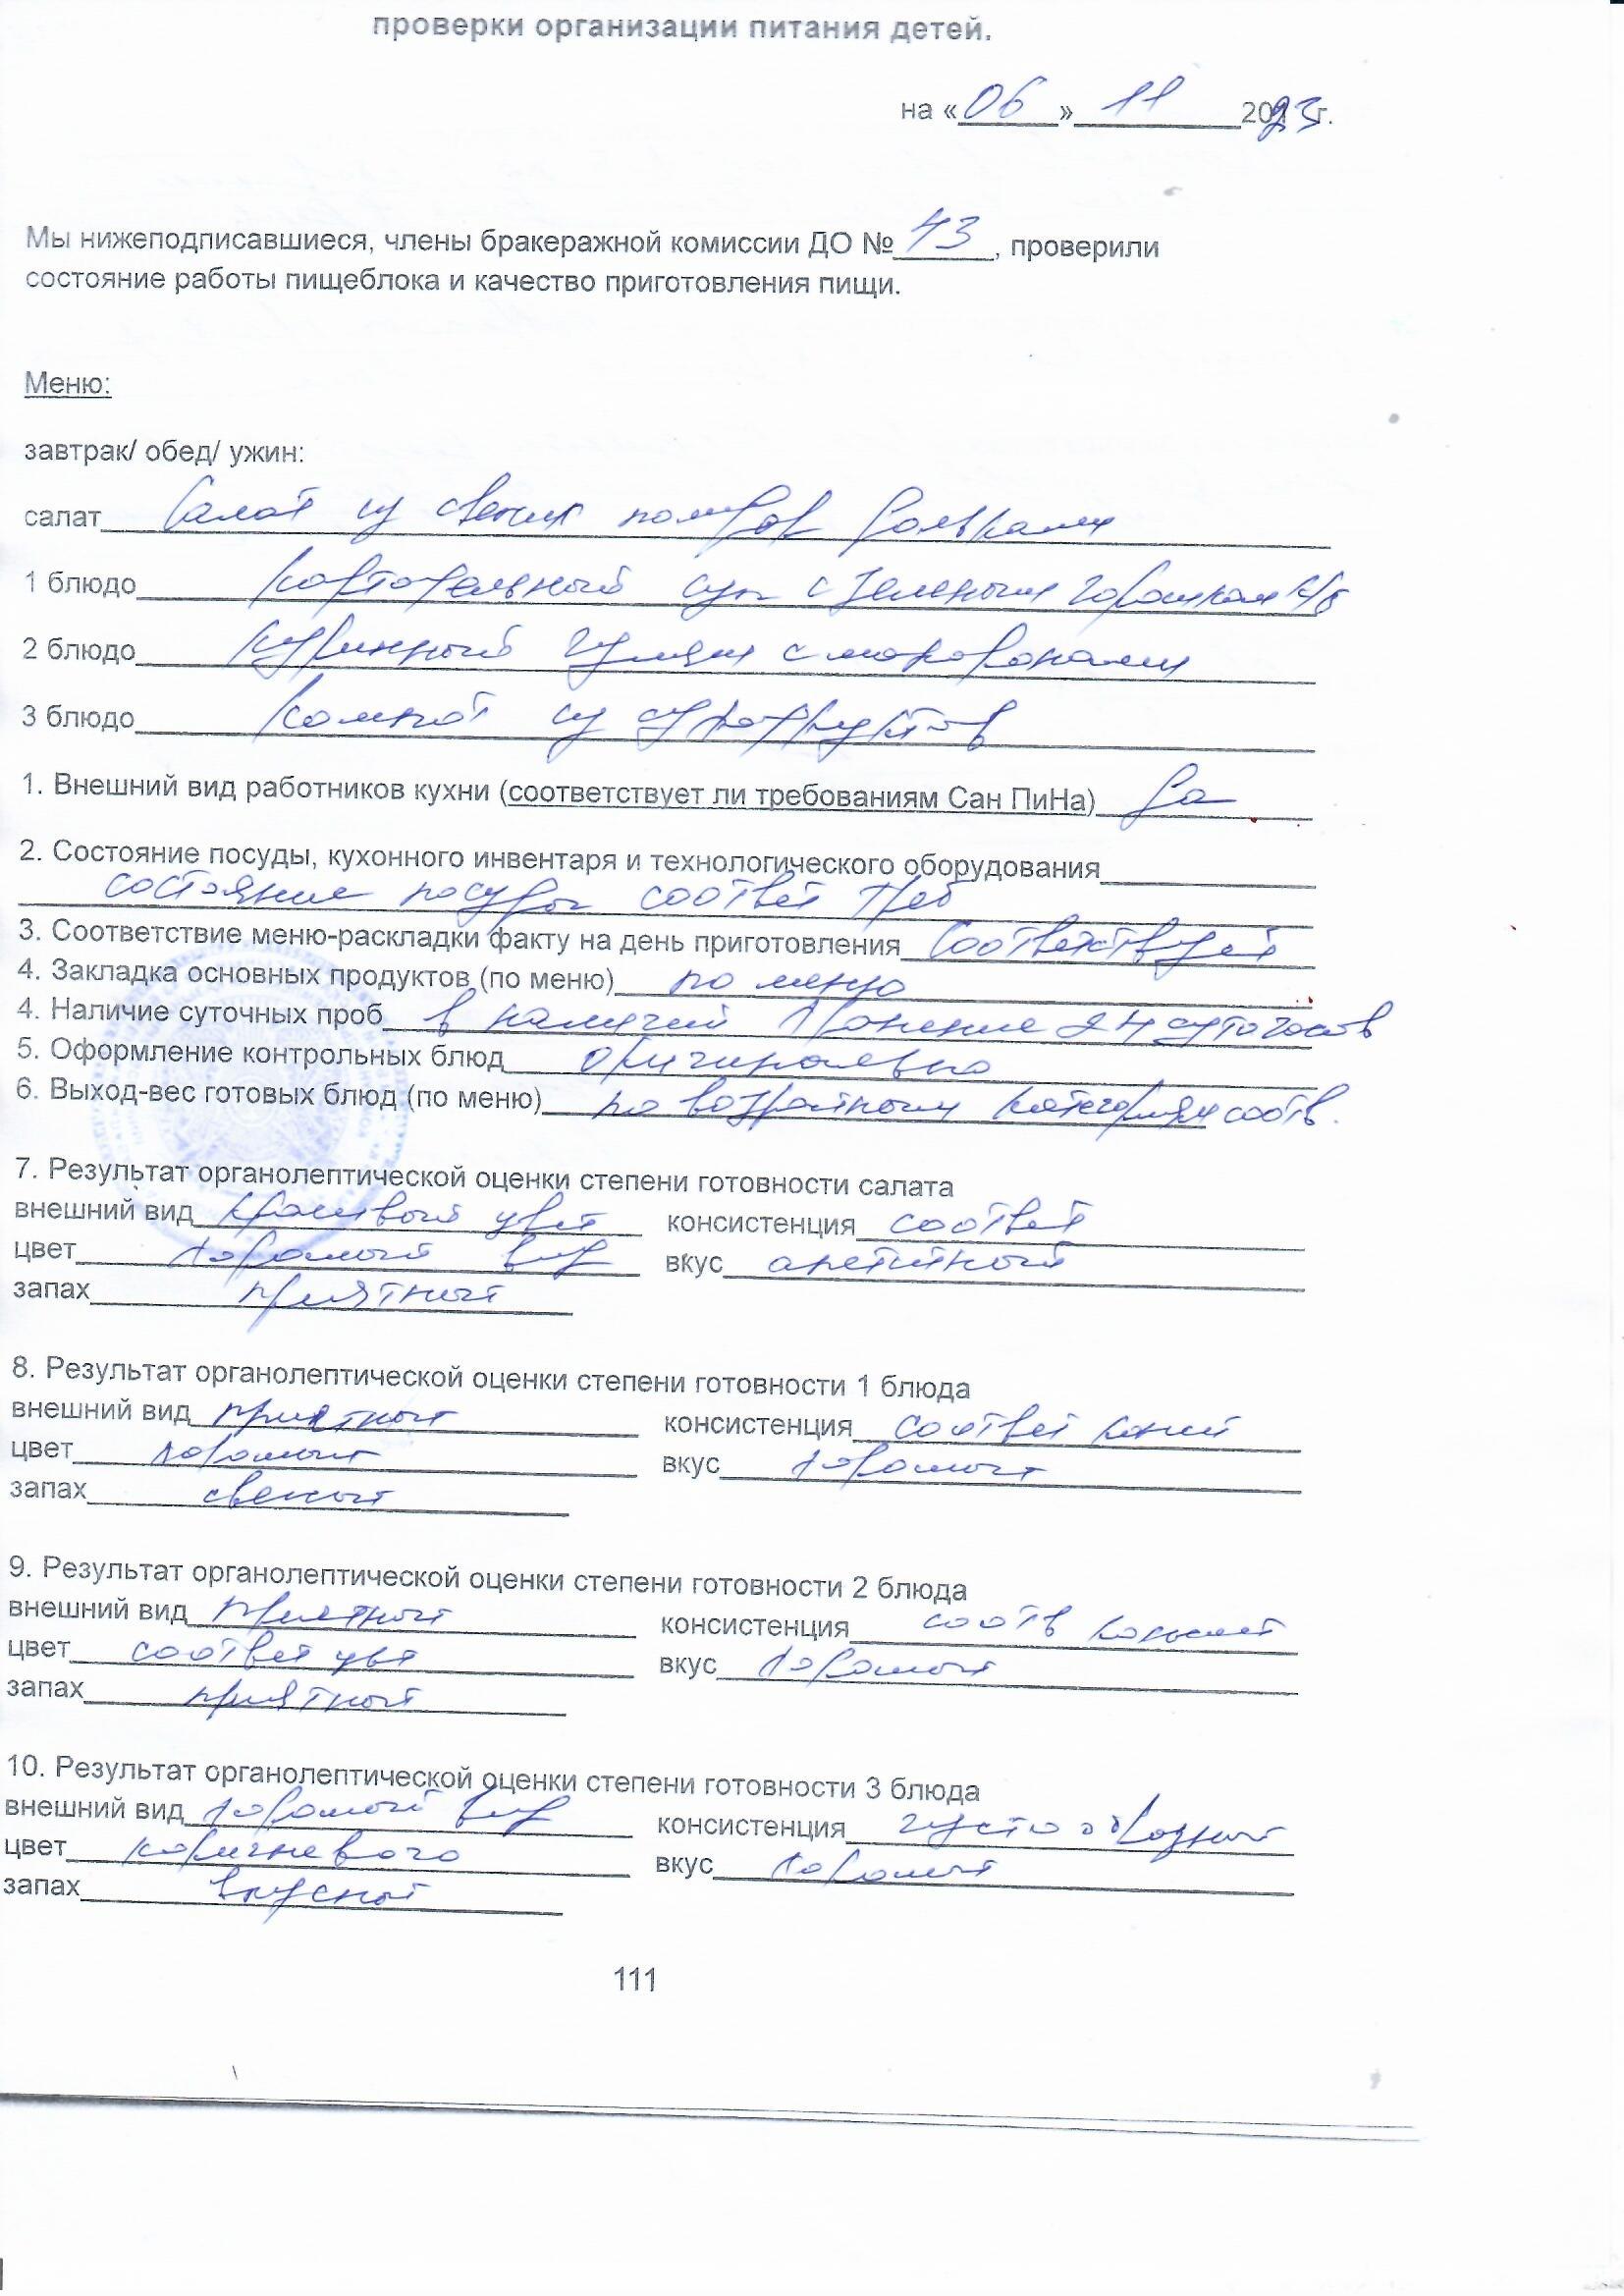 проверки организации питания детей.
на «06» 11 2023 г.
Мы нижеподписавшиеся, члены бракеражной комиссии ДО № 43, проверили
состояние работы пищеблока и качество приготовления пищи.
Меню:
завтрак/ обед/ ужин:
салат Салат из свежих
1 блюдо картофельный суп с зеленым горошком к/б
2 блюдо куринный гуляш с макоронами
3 блюдо компот из сухофруктов
1. Внешний вид работников кухни (соответствует ли требованиям Сан ПиНа) да
2. Состояние посуды, кухонного инвентаря и технологического оборудования
состояние посуды соответ треб
3. Соответствие меню-раскладки факту на день приготовления соответствует
4. Закладка основных продуктов (по меню) по меню
4. Наличие суточных проб в наличий хранение 24 часов
5. Оформление контрольных блюд оригинально
6. Выход-вес готовых блюд (по меню) по возратным категориям соотв.
7. Результат органолептической оценки степени готовности салата
внешний вид красивый цвет консистенция соответ
цвет хороший вид вкус апетитный
запах приятный
8. Результат органолептической оценки степени готовности 1 блюда
внешний вид приятный консистенция соответ
цвет хороший вкус хороший
запах свежый
9. Результат органолептической оценки степени готовности 2 блюда
внешний вид приятный консистенция соотв
цвет соответ цвет вкус хороший
запах приятный
10. Результат органолептической оценки степени готовности 3 блюда
внешний вид хороший вид консистенция густо образный
цвет коричневого вкус хороший
запах вкусный
111